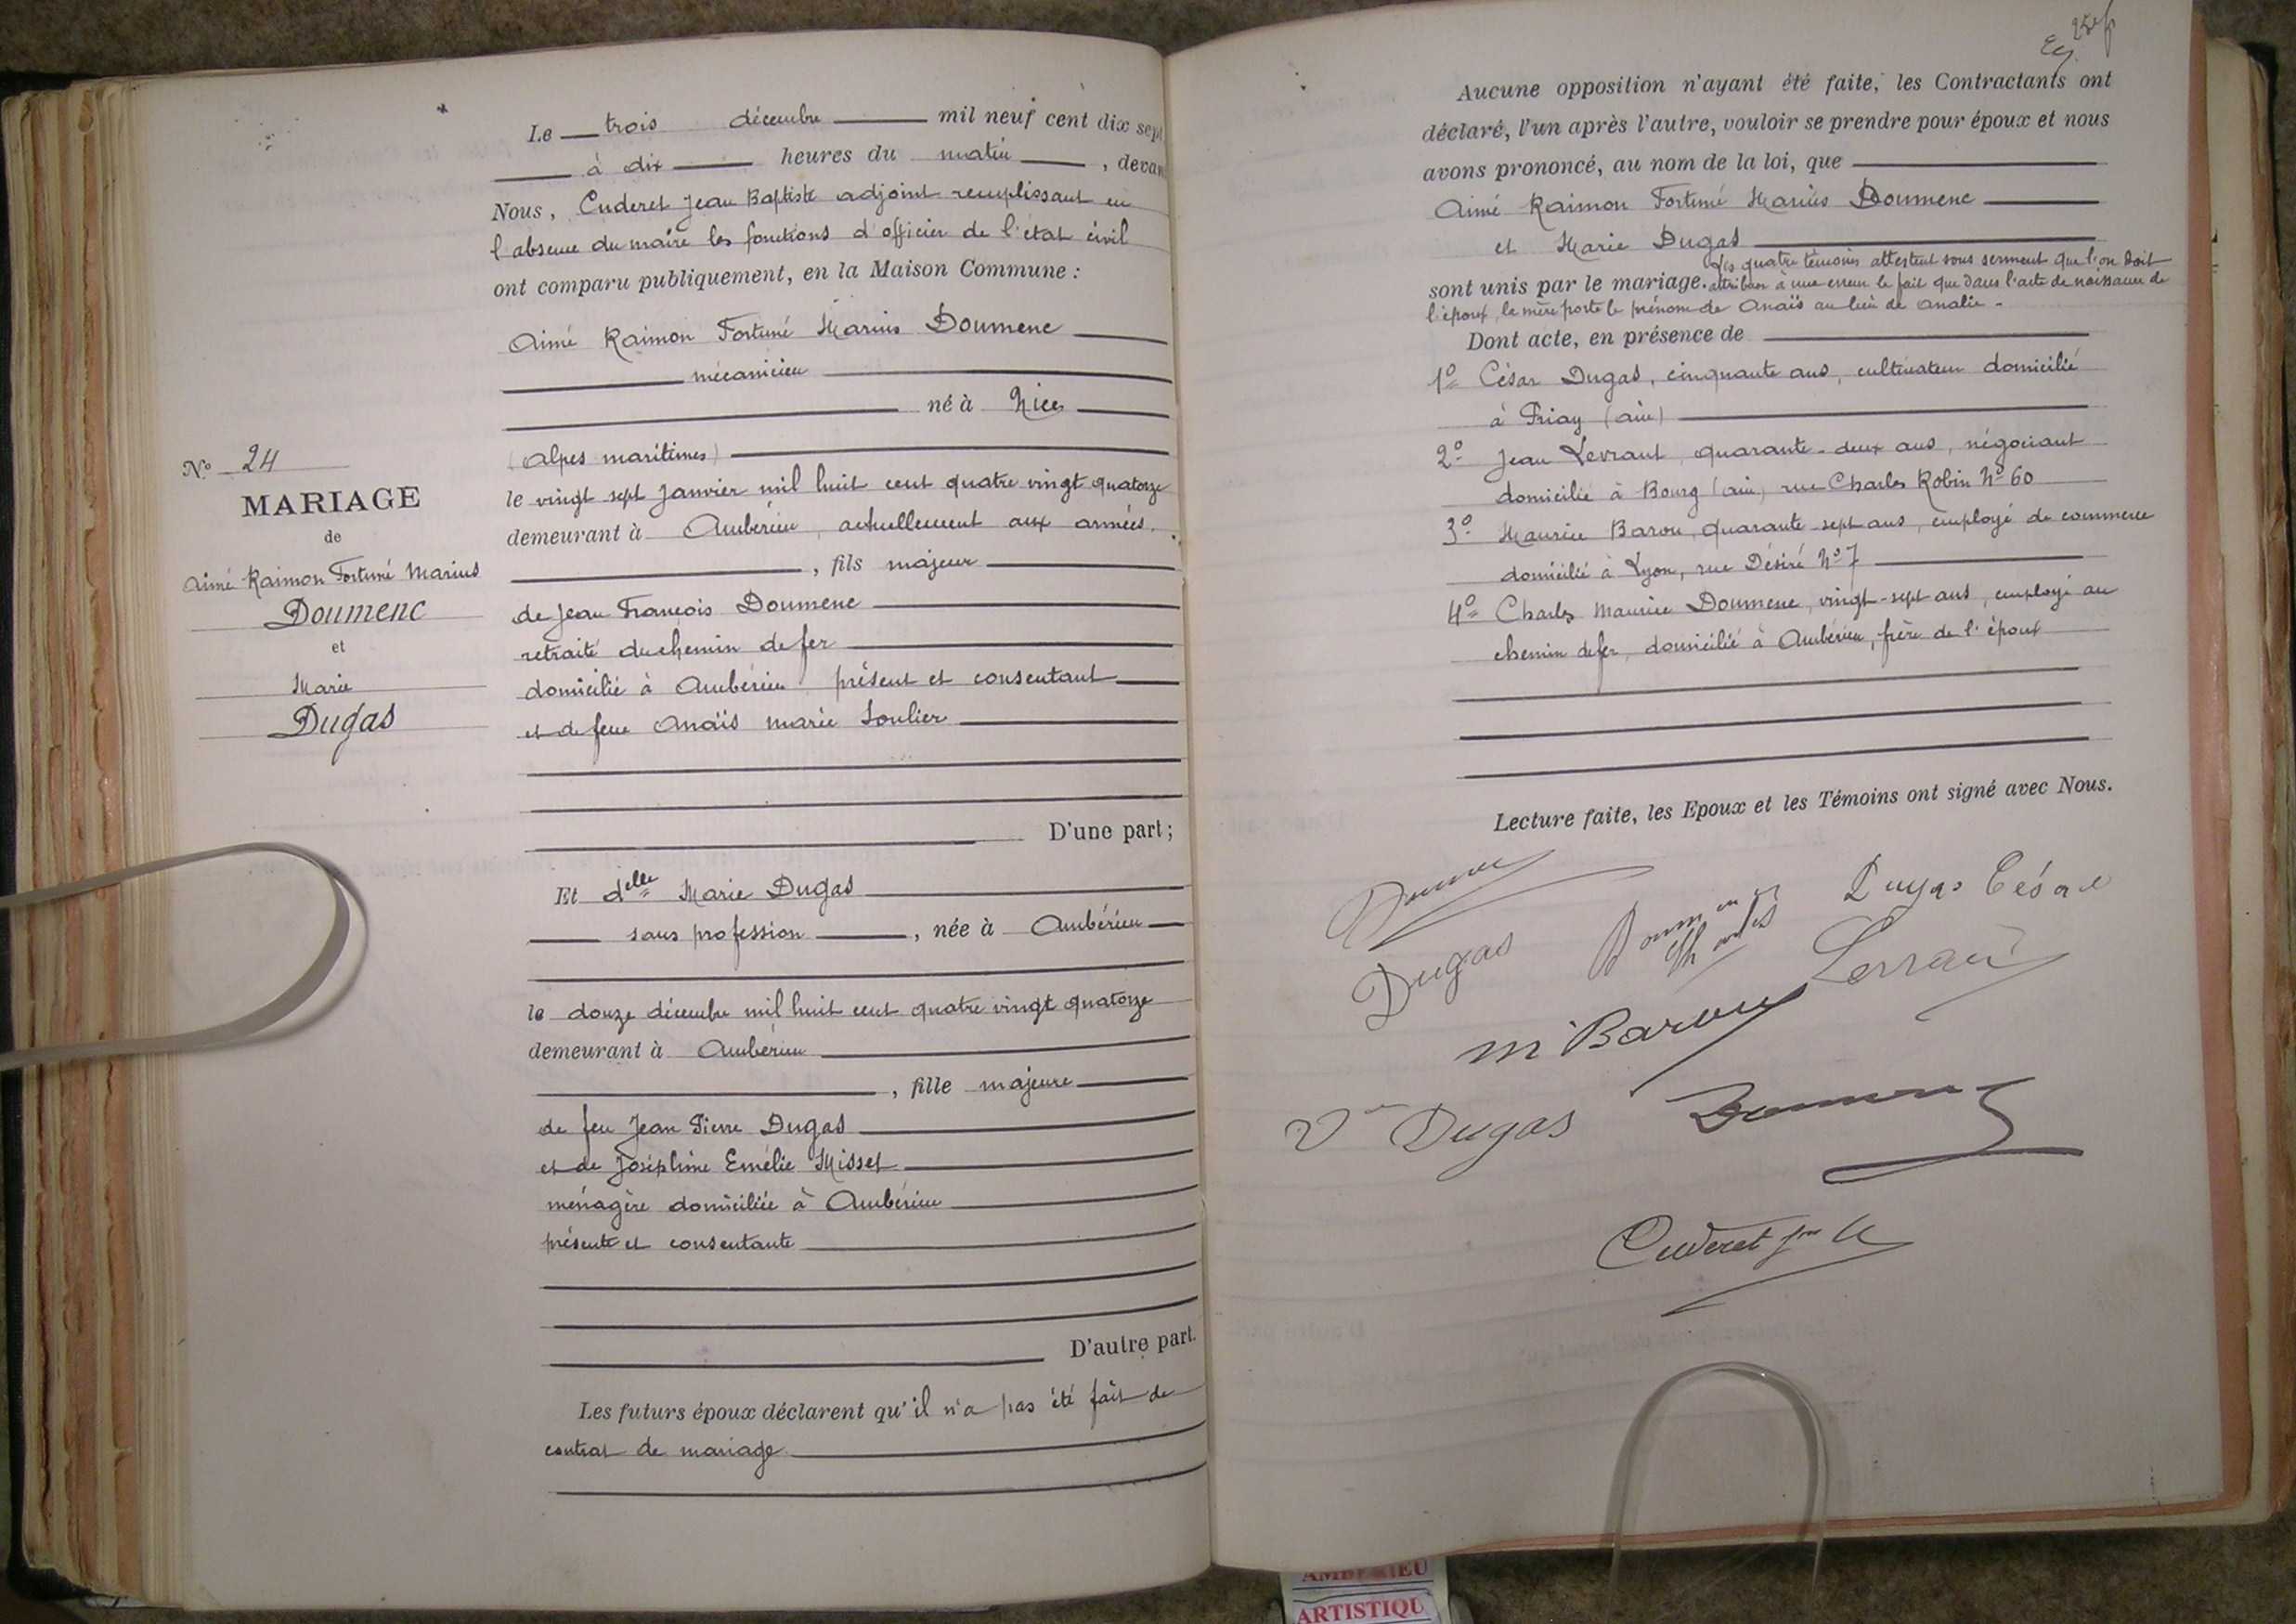 Le trois décembre mil neuf cent dix sept
à dix heures du matin, devan
Nous, Cuderet Jean Baptiste adjoint remplissant en
l'absence du maire les fonctions d'officier de l'état civil
ont comparu publiquement, en la Maison Commune :
Aimé Raimon Fortuné Marius Doumenc
mécanicien
né à Nice
(Alpes maritimes)
le vingt sept Janvier mil huit cent quatre vingt quatorze
demeurant à Ambérieu, actuellement aux armées.
, fils majeur
de Jean François Doumenc
retraité du chemin de fer
domicilié à Ambérieu présent et consentant
et de feue Anaïs Marie Soulier
D'une part ;
Et delle Marie Dugas
sans profession, née à Ambérieu
le douze décembre mil huit cent quatre vingt quatorze
demeurant à Ambérieu
, fille majeure
de feu Jean Pierre Dugas
et de Joséphine Emélie Misset
ménagère domiciliée à Ambérieu
présente et consentante
D'autre part.
Les futurs époux déclarent qu'il n'a pas été fait de
contrat de mariage
No 24
MARIAGE
de
Aimé Raimon Fortuné Marius
Doumenc
et
Marie
Dugas
Aucune opposition n'ayant été faite, les Contractants ont
déclaré, l'un après l'autre, vouloir se prendre pour époux et nous
avons prononcé, au nom de la loi, que
Aimé Raimon Fortuné Marius Doumenc
et Marie Dugas
sont unis par le mariage. Les quatre témoins attestent sous serment que l'on doit
attribuer à une erreur le fait que dans l'acte de naissance de
l'époux, la mère porte le prénom de Anaïs au lieu de Analie -
Dont acte, en présence de
1o César Dugas, cinquante ans, cultivateur domicilié
à Priay (Ain)
2o Jean Levrant, quarante-deux ans, négociant
domicilié à Bourg (Ain) rue Charles Robin No 60
3o Maurice Barou, quarante-sept ans, employé de commerce
domicilié à Lyon, rue Désiré No 7
4o Charles Maurice Doumenc, vingt-sept ans, employé au
chemin de fer, domicilié à Ambérieu, frère de l'époux
Lecture faite, les Epoux et les Témoins ont signé avec Nous.
Dugas César
Dugas
Doumenc Charles
M Barou
Ve Dugas
Doumenc
Cuderet
AMBERIEU
ARTISTIQU